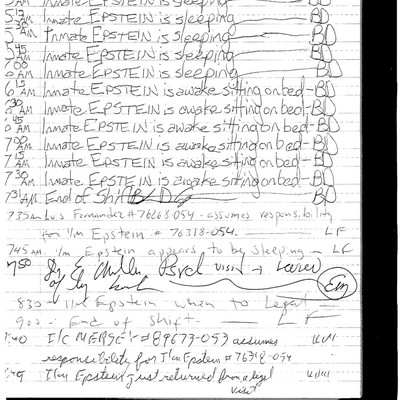 AM Inmate EPSTEIN is sleeping
5 15 AM Inmate EPSTEIN is sleeping BD
5 30 AM Inmate EPSTEIN is sleeping BD
5 45 AM Inmate EPSTEIN is sleeping BD
6 00 AM Inmate EPSTEIN is sleeping BD
6 15 AM Inmate EPSTEIN is awake sitting on bed - BD
30 AM Inmate EPSTEIN is awake sitting on bed - BD
45 AM Inmate EPSTEIN is awake sitting on bed - BD
7 00 AM Inmate EPSTEIN is awake sitting on bed - BD
7 15 AM Inmate EPSTEIN is awake sitting on bed - BD
7 30 AM Inmate EPSTEIN is awake sitting on bed - BD
AM End of Shift
735am Luis Fernandez # 76268-054 - assumes responsibility
for I/m Epstein # 76318-054. LF
745am I/m Epstein appears to be sleeping - LF
750 Psych visit
830 - I/m Epstein when to Legal
900 - End of shift - LF
I/C # 89673-053 assumes
responsibility for I/m Epstein # 76318-054
I/m Epstein just returned from a legal
visit